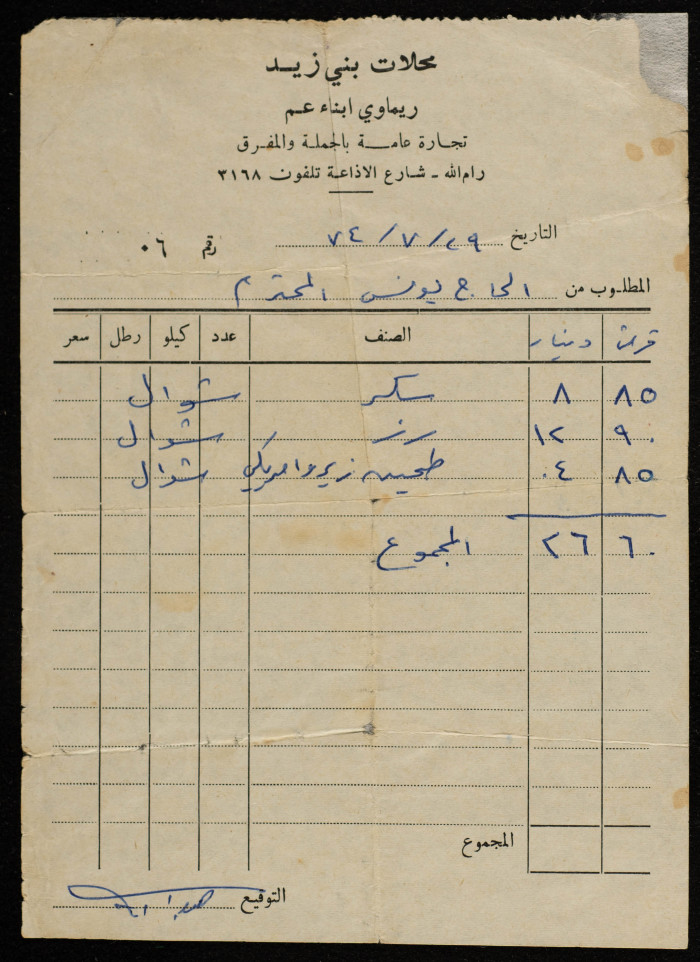 محلات بني زيد
ريماوي ابناء عم
تجارة عامة بالجملة والمفرق
رام الله - شارع الاذاعة تلفون ٣١٦٨
التاريخ ٢٩/٧/٧٤ رقم ٠٦
المطلوب من الحاج يونس المحترم
قرش دينار الصنف عدد كيلو رطل سعر
٨٥ ٨ سكر شوال
٩٠ ١٢ رز شوال
٨٥ ٠٤ طحين زيرو امريكي شوال
٦٠ ٢٦ المجموع
المجموع
التوقيع